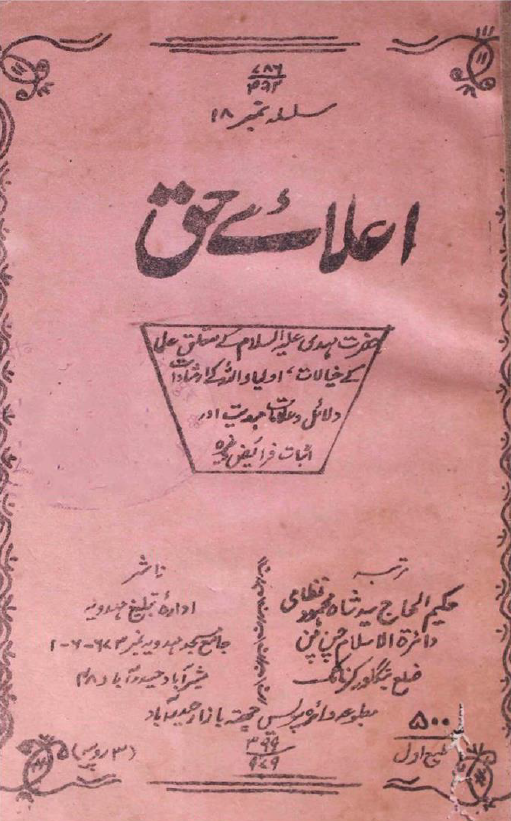 ۷۸۶
۳۱۲
سلسلہ نمبر ۱۸
اعلائے حق
حضرت مہدی علیہ السلام کے متعلق علما
کے خیالات، اولیاء اللہ کے ارشادات
دلائل و علامات مہدیت اور
اثبات فرائض وغیرہ
مرتبہ
حکیم الحاج سید شاہ محمود نظامی
دائرۃ الاسلام چن پٹن
ضلع بنگلور کرناٹک
ناشر
ادارۂ تبلیغ مہدویہ
جامع مسجد مہدویہ نمبر ۶۷۳-۶-۱
مشیرآباد حیدرآباد ۴۸
مطبوعہ دائرہ پریس چھتہ بازار حیدرآباد
۵۰۰
طبع اول
۳۹۹
۹۷۹
(۳ روپیے)